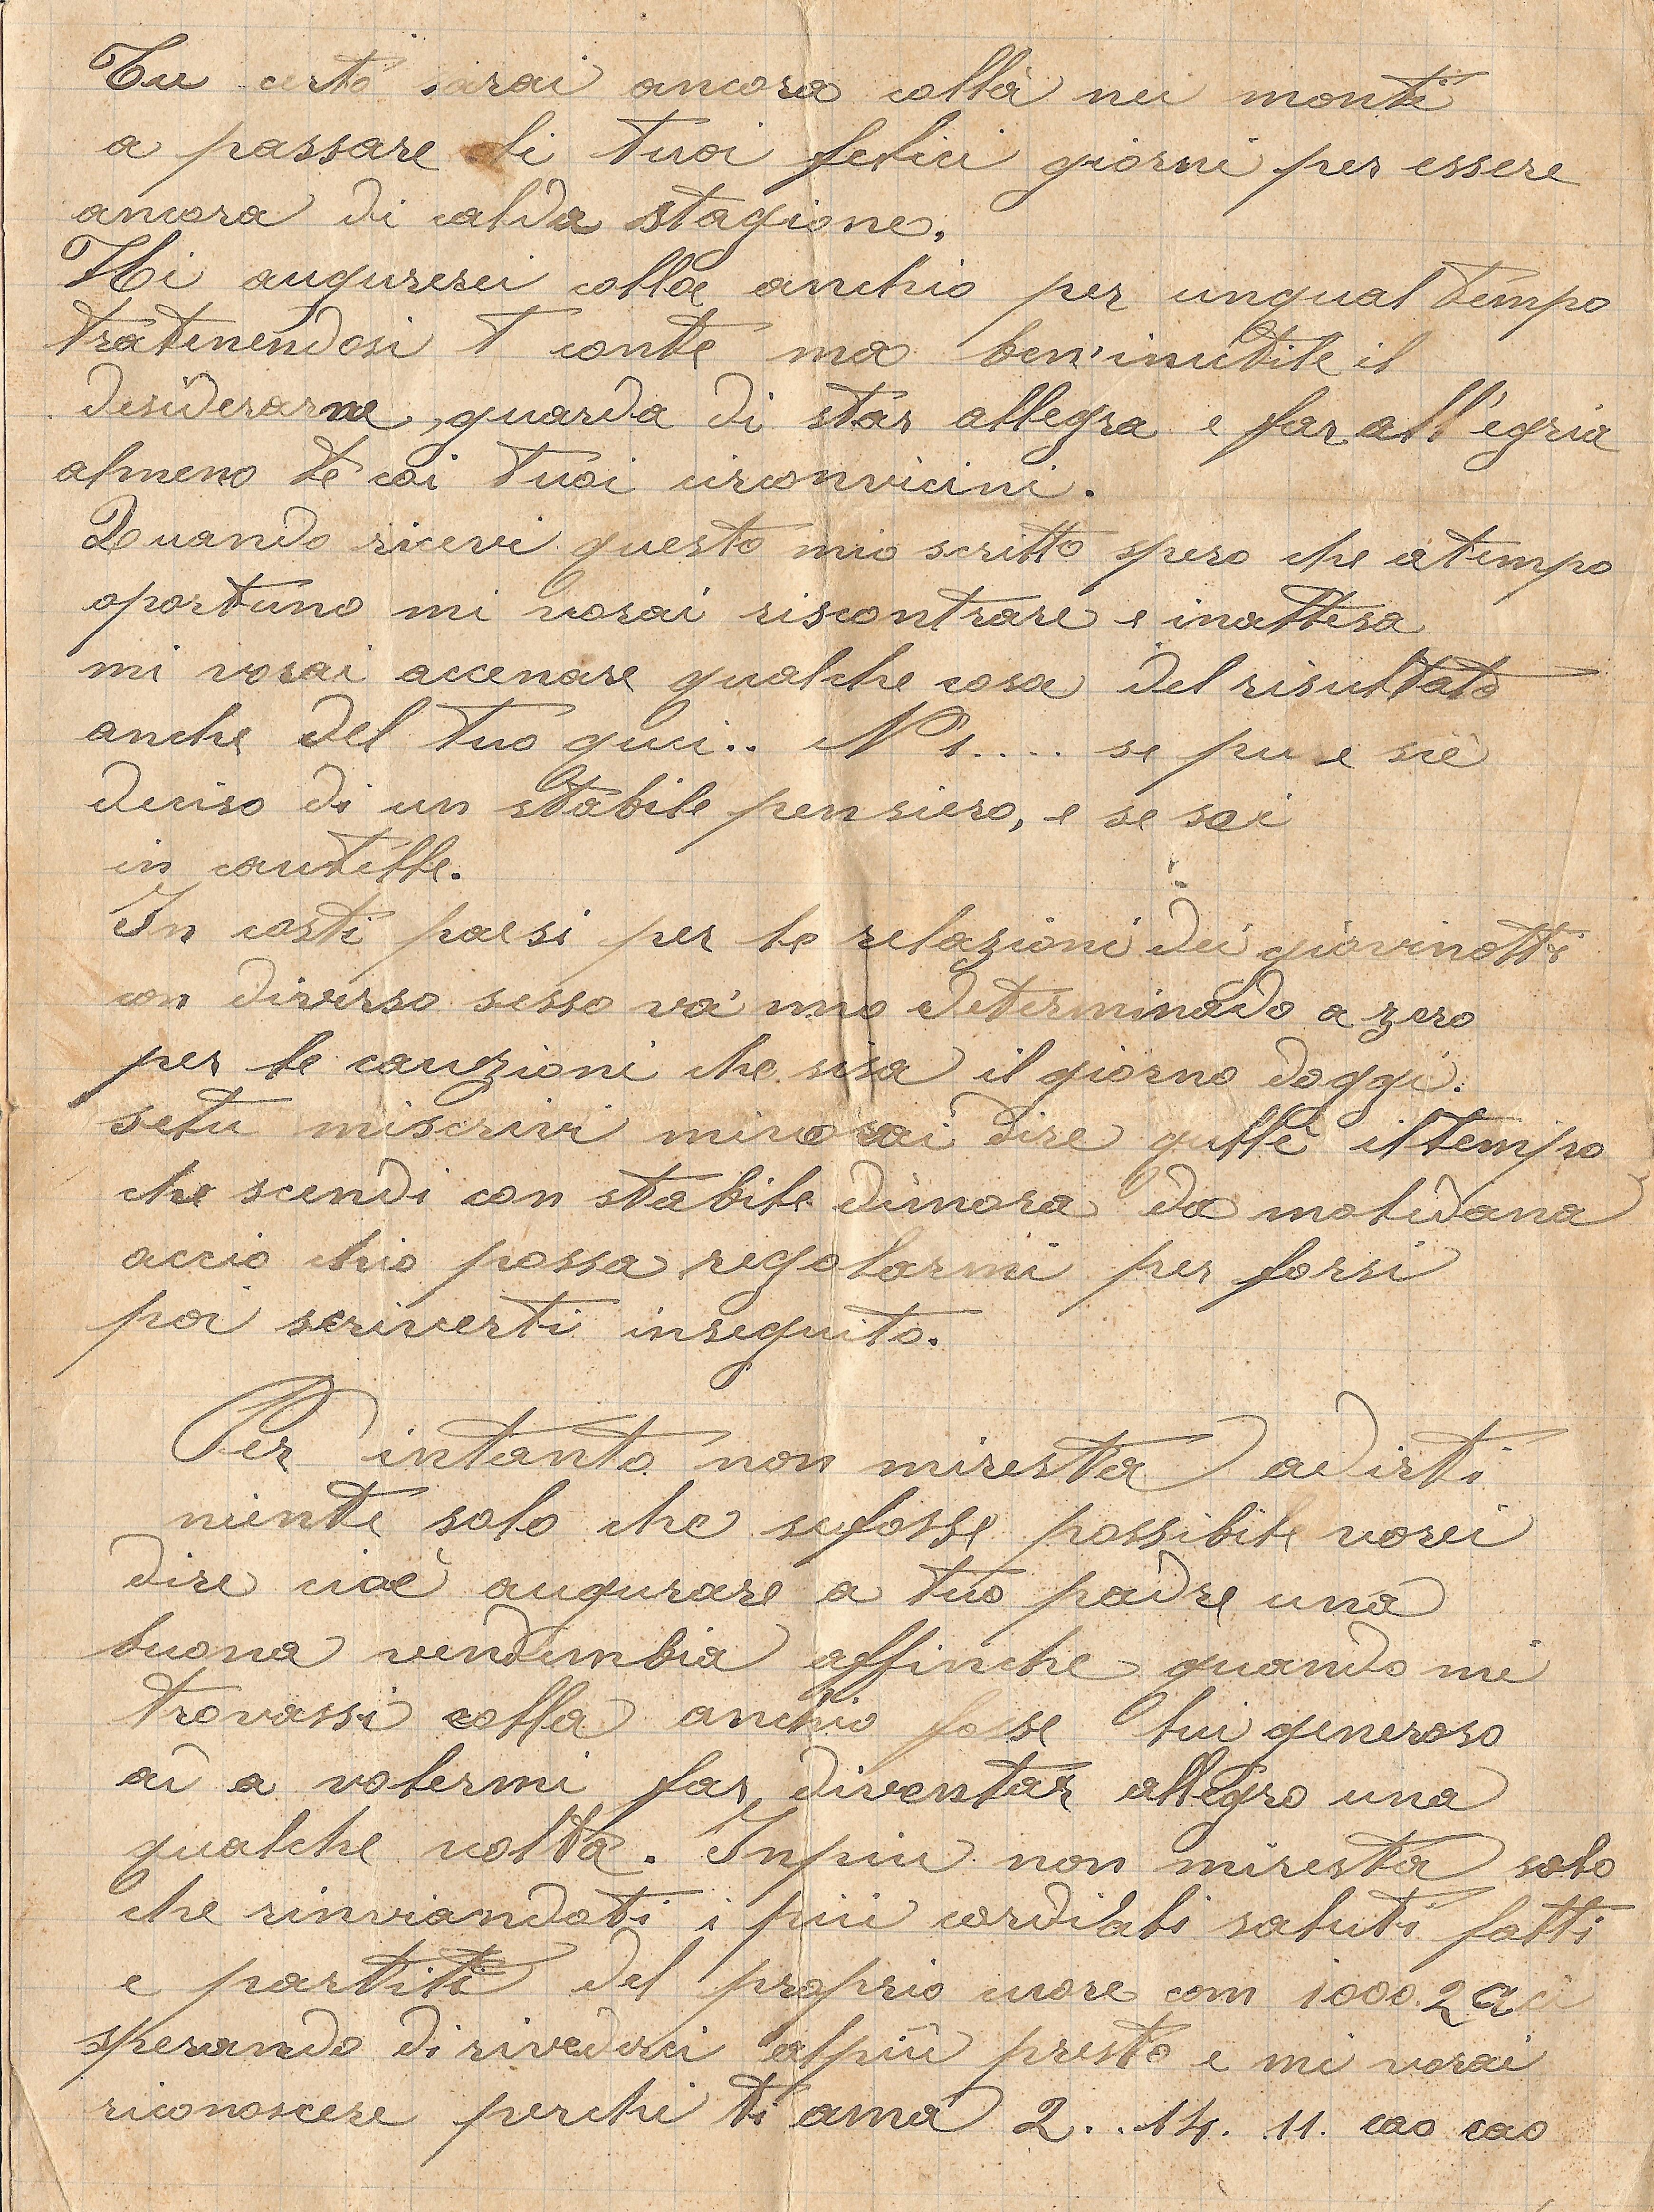 Tu certo sarai ancora collà nei monti
a passare li tuoi felici giorni per essere
ancora di calda stagione.
Mi augurerei colla anchio per unqual tempo
tratenendosi T conte ma ben'inutile il
desiderarne, guarda di star allegra e far all'egria
almeno te coi tuoi circonvicini.
Quando ricevi questo mio scritto spero che a tempo
oportuno mi vorai riscontrare e inattesa
mi vorai accenare qualche cosa del risultato
anche del tuo qui.. N 1.... se pure siè
deciso di un stabile pensiero, e se sei
in cautelle.
In costi paesi per le relazioni dei giovinotti
con diverso sesso và uno determinado a zero
per le cauzioni che sisa il giorno doggi.
setu miscrivi mi vorai dire qullè il tempo
che scendi con stabile dimora da molidana
accio chio possa regolarmi per forsi
poi scriverti inseguito.
Per intanto non miresta adirti
niente solo che sefosse possibile vorei
dire cioè augurare a tuo padre una
buona vendembia affinche quando mi
trovassi colla anchio fosse lui generoso
ai a volermi far diventar allegro una
qualche volta. Inpiu non miresta solo
che rinviandoti i più cordilali saluti fatti
e partiti del proprio cuore com 1000. 2
sperando di rivederci alpiù presto e mi vorai
riconoscere perchi ti ama 2. . 14. 11. cao cao